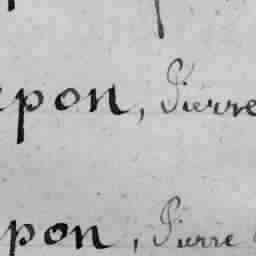 pon, Pierre
pon, Pierre